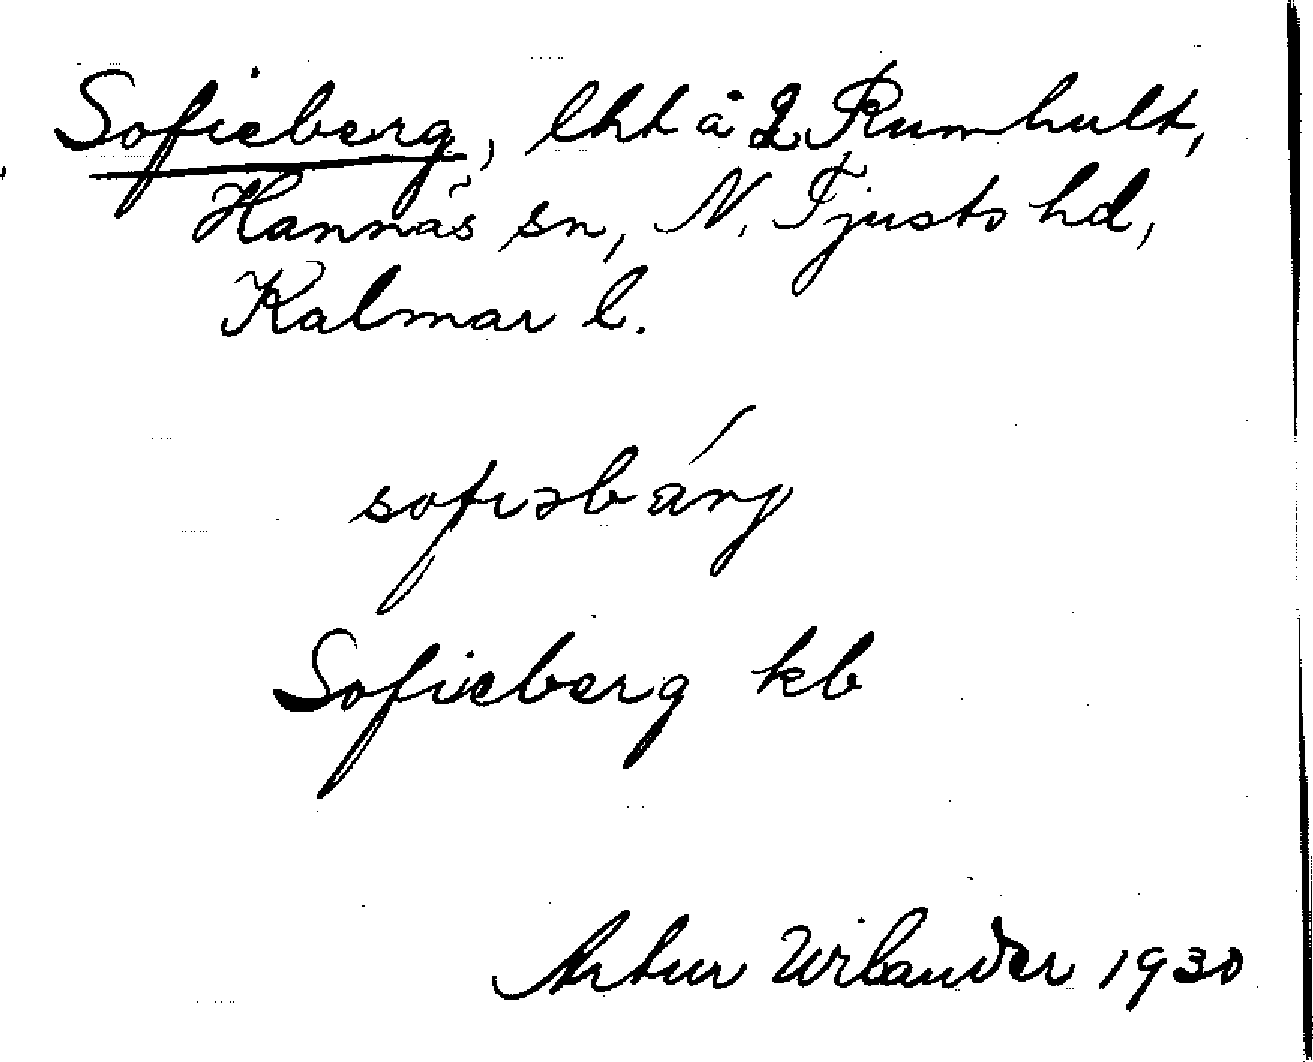 Sofieberg, lht å 2 Rumhult,
Hannäs sn, N. Tjusts hd,
Kalmar l.
sofiəbärj
Sofieberg kb
Artur Wilander 1930